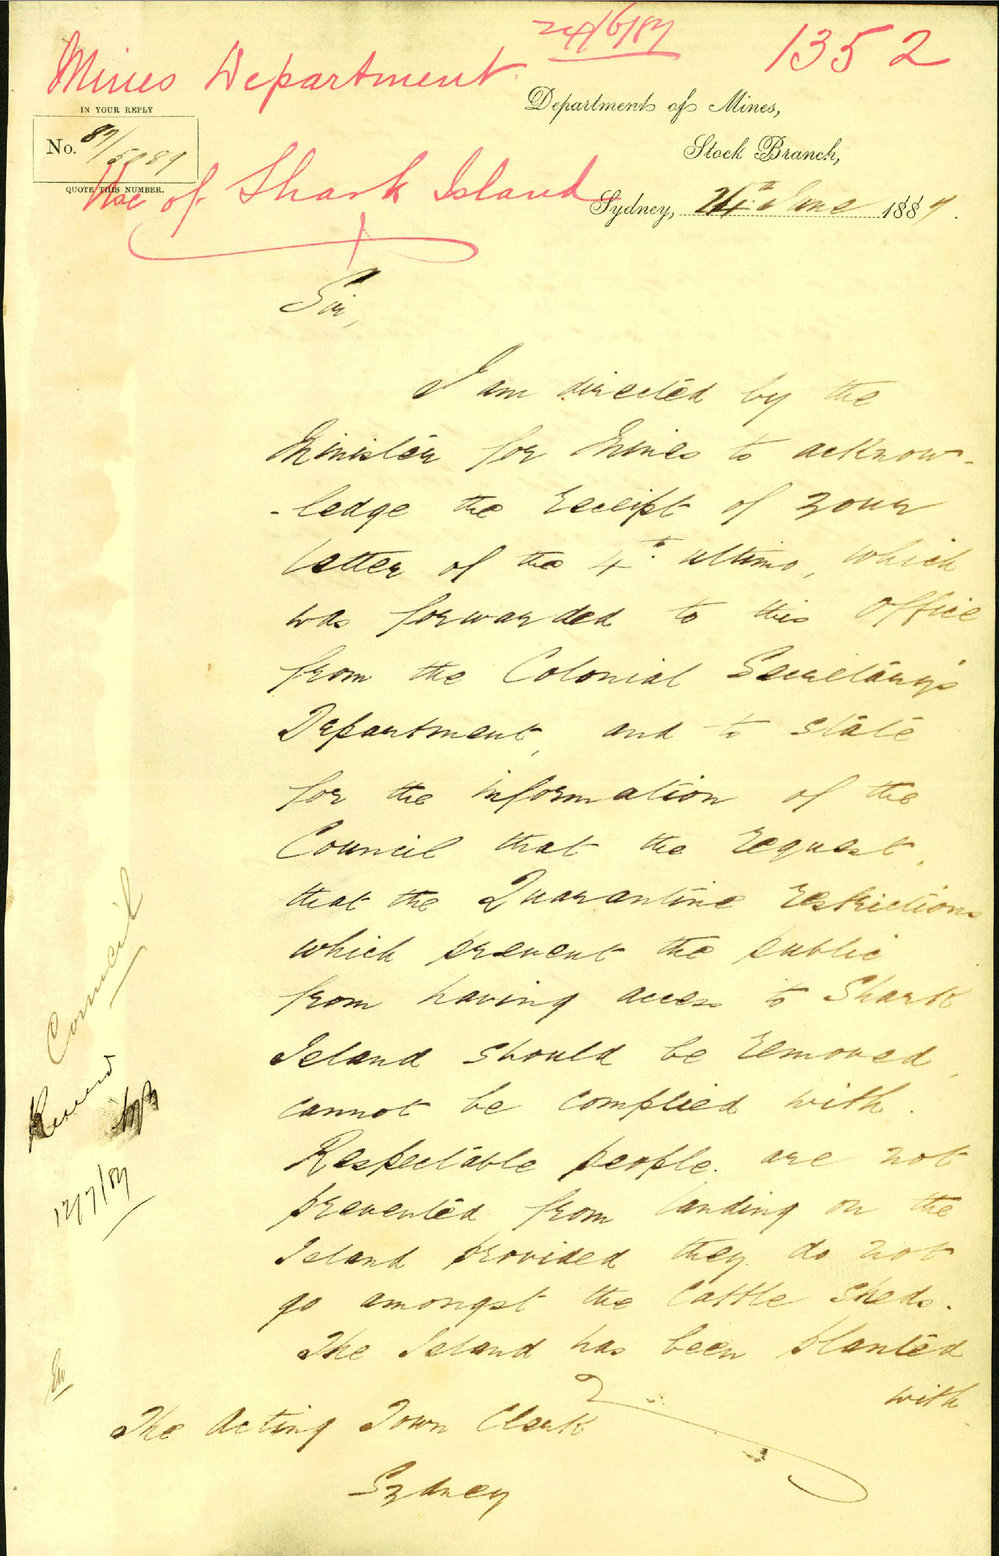 24/6/87
1352
Mines Department
IN YOUR REPLY
No. 87/
QUOTE THIS NUMBER.
Department of Mines,
Stock Branch,
Use of Shark Island
Sydney, 24th June 1887.
Sir,
I am directed by the
Minister for Mines to acknow-
-ledge the receipt of your
letter of the 4th ultimo, which
was forwarded to this Office
from the Colonial Secretary's
Department, and to state
for the information of the
Council that the request,
that the Quarantine restrictions
which prevent the public
from having access to Shark
Island should be removed,
cannot be complied with.
Respectable people are not
prevented from landing on the
Island provided they do not
go amongst the Cattle Sheds.
The Island has been planted
with
The Acting Town Clerk
Sydney
Council
12/7/87